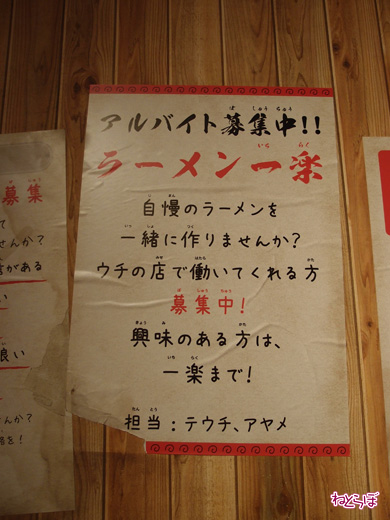 アルバイト募集中!!
ラーメン一楽
自慢のラーメンを
一緒に作りませんか?
ウチの店で働いてくれる方
募集中!
興味のある方は、
一楽まで!
担当:テウチ、アヤメ
募集
て
せんか?
音がある
い
良い
んか?
を!
ねとらぼ